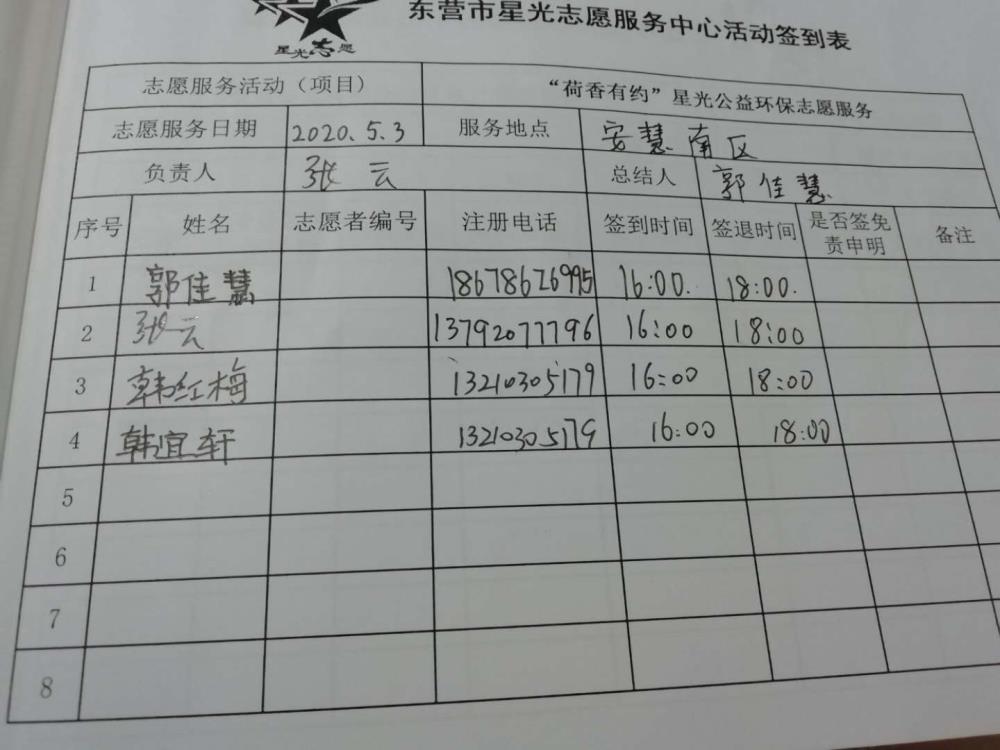 东营市星光志愿服务中心活动签到表
星光志愿
志愿服务活动（项目） “荷香有约”星光公益环保志愿服务
志愿服务日期 2020.5.3 服务地点 安慧南区
负责人 张云 总结人 郭佳慧
序号 姓名 志愿者编号 注册电话 签到时间 签退时间 是否签免责申明 备注
1 郭佳慧 18678626995 16:00. 18:00.
2 张云 13792077796 16:00 18:00
3 韩红梅 13210305179 16:00 18:00
4 韩宜轩 13210305179 16:00 18:00
5
6
7
8